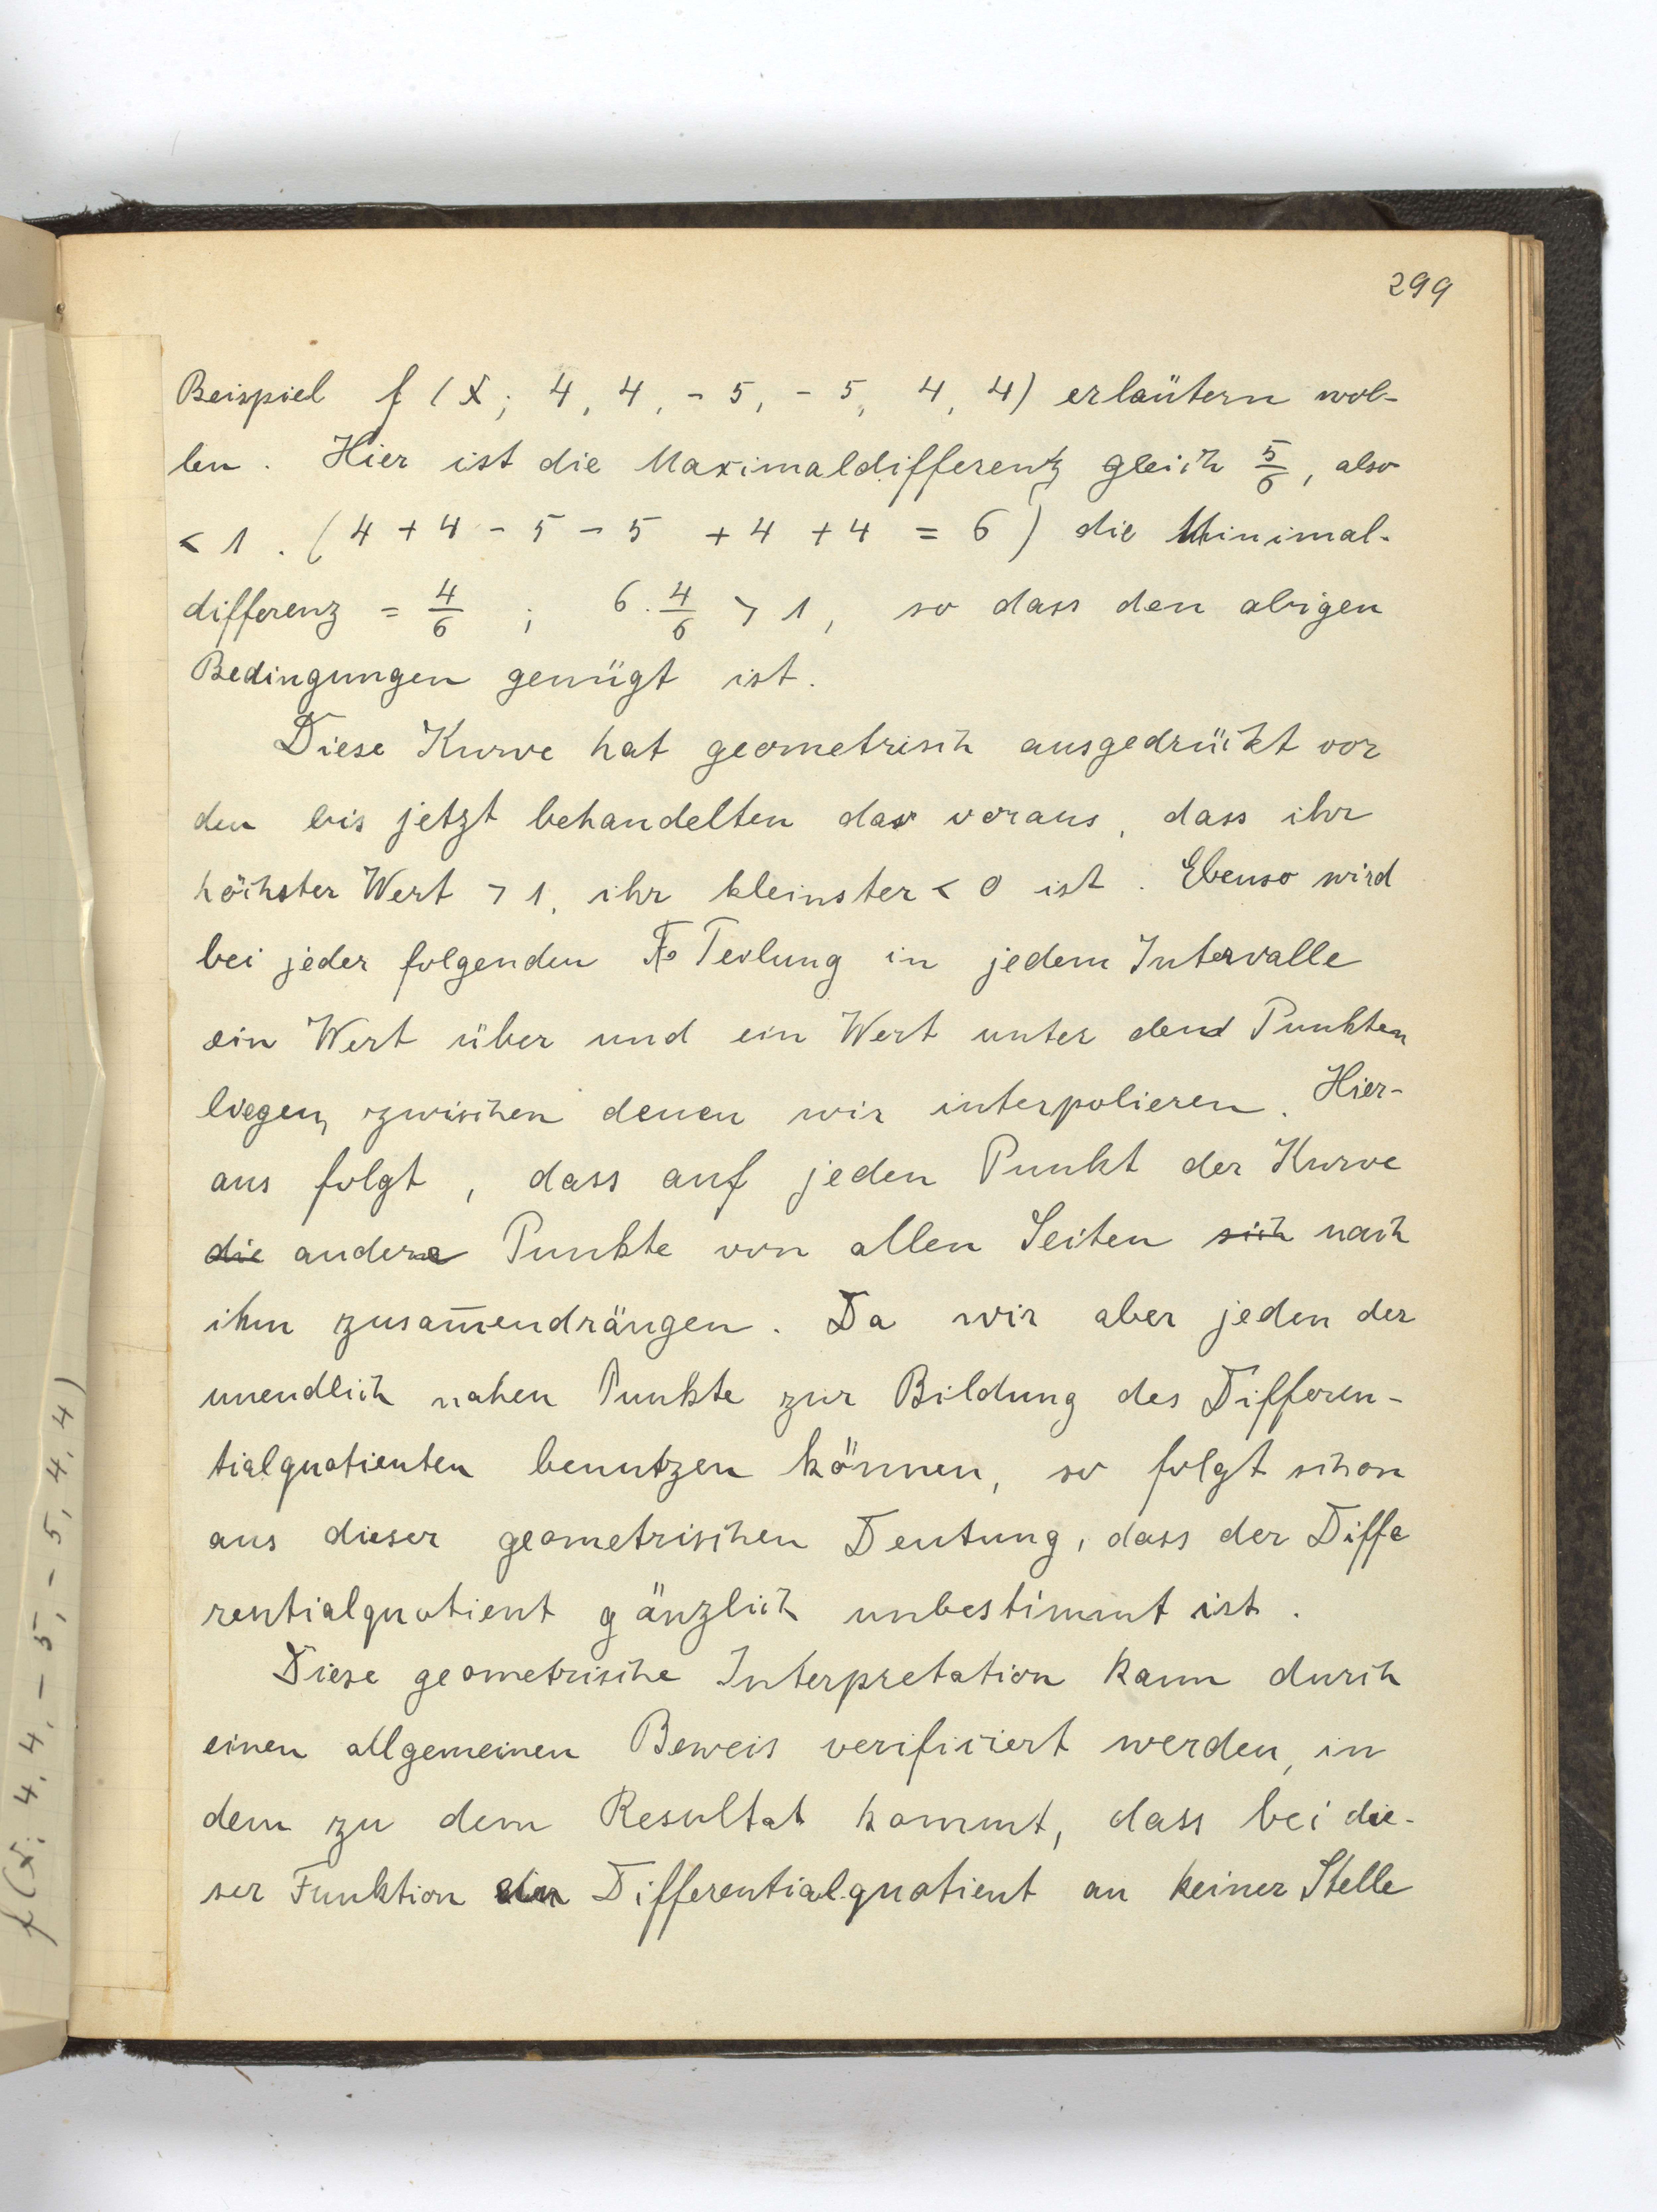 299
Beispiel f (x; 4, 4, - 5, - 5, 4, 4) erläutern wol-
len. Hier ist die Maximaldifferenz gleich 5/6, also
< 1. (4 + 4 - 5 - 5 + 4 + 4 = 6) die Minimal-
differenz = 4/6 ; 6 . 4/6 > 1, so dass den obigen
Bedingungen genügt ist.
Diese Kurve hat geometrisch ausgedrückt vor
den bis jetzt behandelten das voraus, dass ihr
höchster Wert > 1, ihr kleinster < 0 ist. Ebenso wird
bei jeder folgenden Teilung in jedem Intervalle
ein Wert über und ein Wert unter den Punkten
liegen, zwischen denen wir interpolieren. Hier-
aus folgt, dass auf jeden Punkt der Kurve
die andere Punkte von allen Seiten sich nach
ihm zusam̅endrängen. Da wir aber jeden der
unendlich nahen Punkte zur Bildung des Differen-
tialquotienten benutzen können, so folgt schon
aus dieser geometrischen Deutung, dass der Diffe
rentialquotient gänzlich unbestimmt ist.
Diese geometrische Interpretation kann durch
einen allgemeinen Beweis verificiert werden, in
dem zu dem Resultat kommt, dass bei die-
ser Funktion ein Differentialquotient an keiner Stelle
f (x; 4, 4, - 5, - 5, 4, 4)